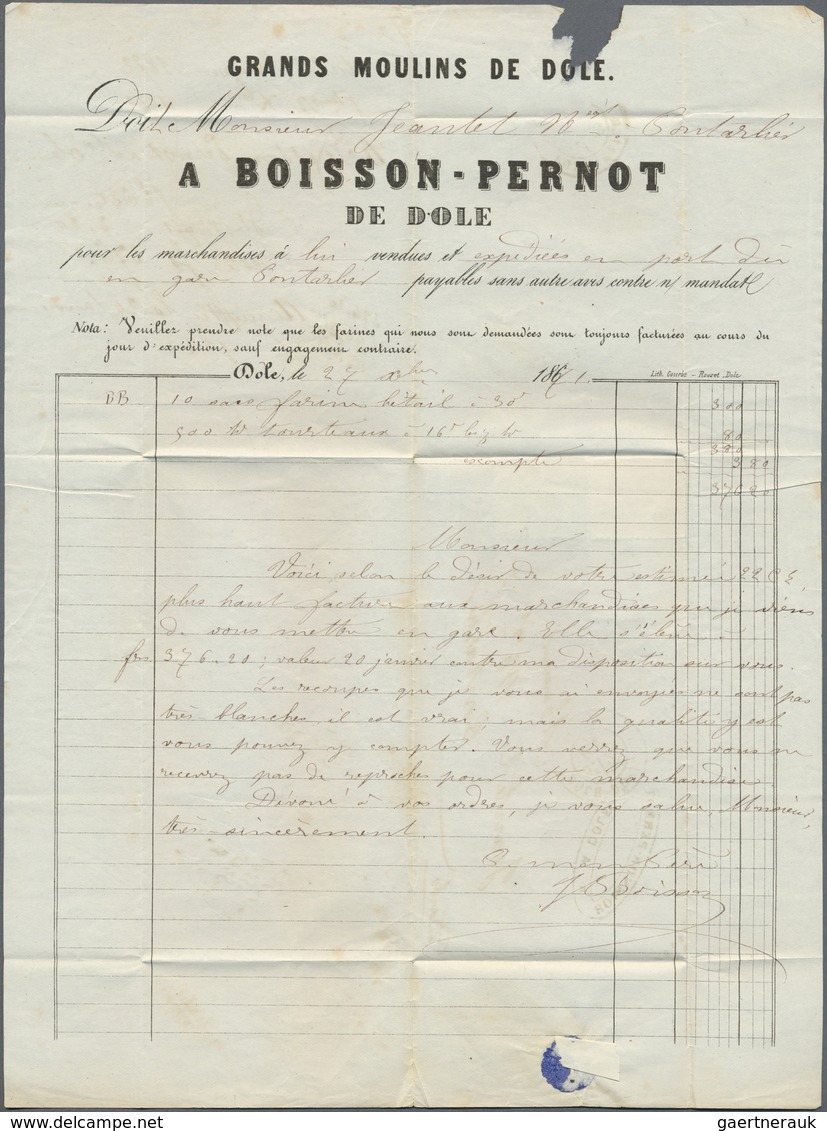 GRANDS MOULINS DE DOLE.
Doit Monsieur Jeantet Pontarlier
A BOISSON-PERNOT
DE DOLE
pour les marchandises à lui vendues et expédiées en port dû
en gare Pontarlier payables sans autre avis contre n/ mandat
Nota: Veuillez prendre note que les farines qui nous sont demandées sont toujours facturées au cours du
jour d'expédition, sauf engagement contraire.
Dole, le 27 Xbre 1871. Lith. Courvie - Rouzet, Dole
DB 10 sacs farine bétail à 30f 300
500 k tourteaux à 16f les % k 80
380
escompte 3 80
376 20
Monsieur
Voici selon le désir de votre estimée 22 Ct
plus haut facture aux marchandises que je viens
de vous mettre en gare. Elle s'élève à
frs 376.20; valeur 20 janvier contre ma disposition sur vous.
Les recoupes que je vous ai envoyées ne sont pas
très blanches, il est vrai; mais la qualité y est
vous pouvez y compter. Vous verrez que vous ne
recevrez pas de reproches pour cette marchandise.
Dévoué à vos ordres, je vous salue, Monsieur,
très sincèrement.
P. mon Père
J Boisson
gaertnerauk